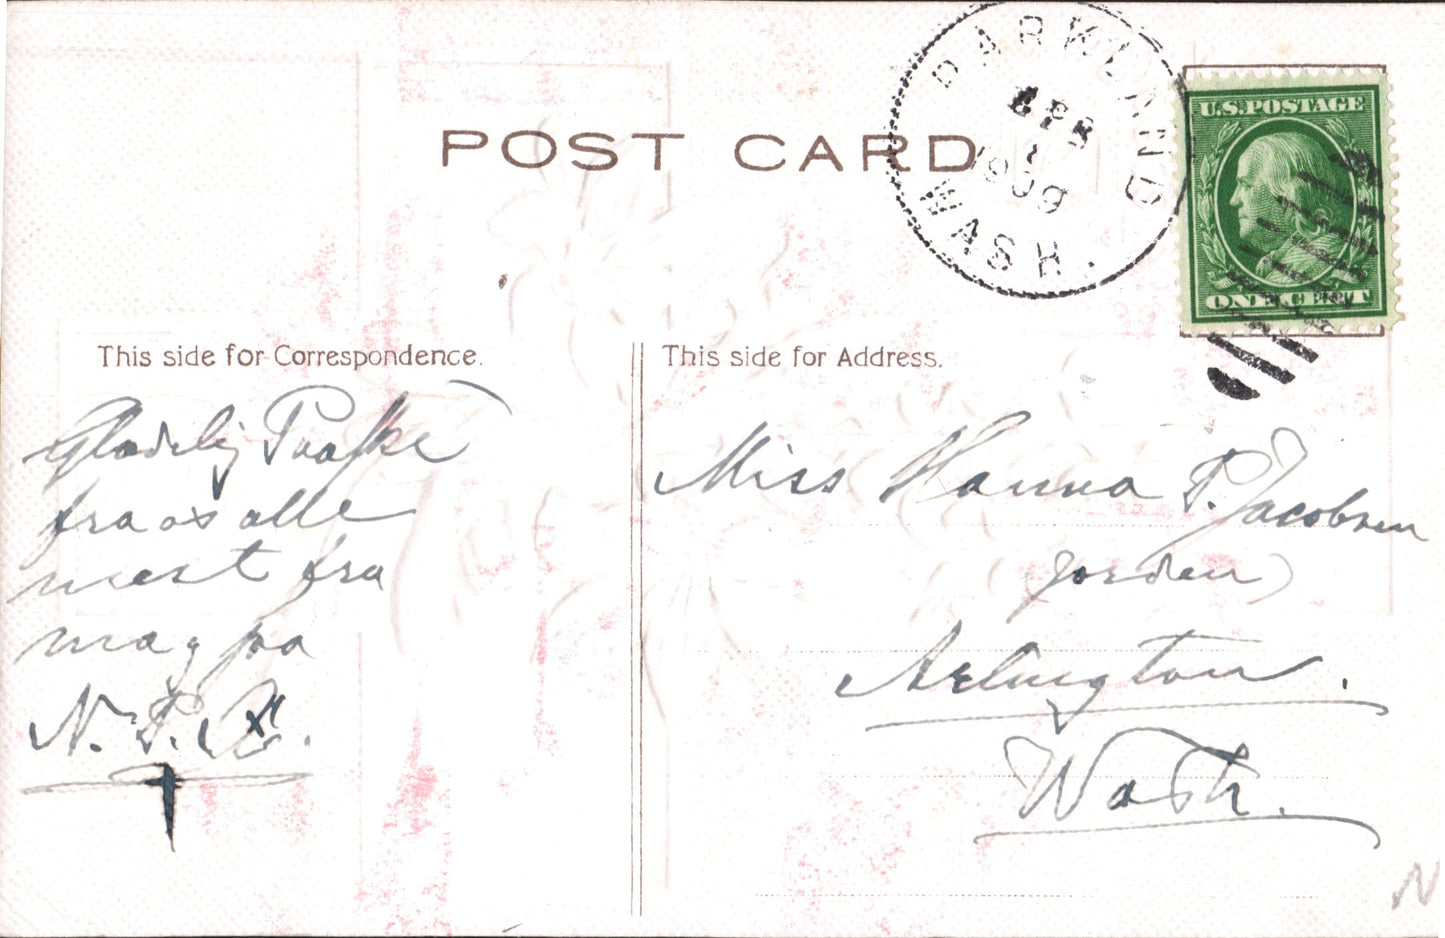 POST CARD
DARWLAND
APR
1
1909
WASH.
U.S. POSTAGE
ONE CENT
This side for Correspondence.
This side for Address.
Gladelig Paaske
fra os alle
mest fra
mag paa
N. P.
Miss Hanna P. Jacobsen
(Jorden)
Arlington.
Wash.
N